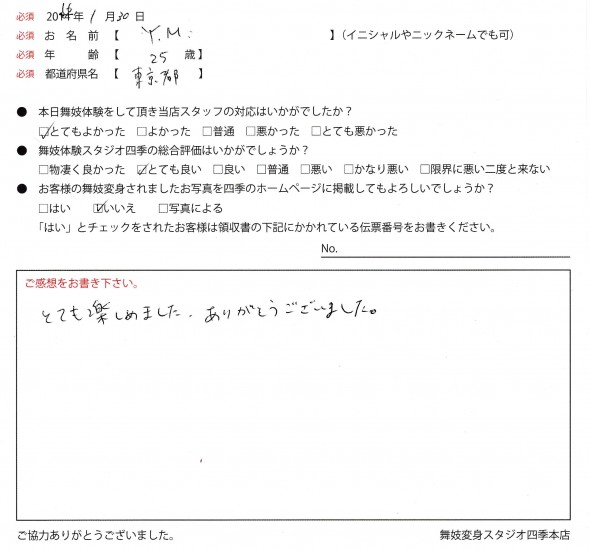 必須 20 年 1 月 30 日
必須 お 名 前 【 Y.M. 】(イニシャルやニックネームでも可)
必須 年 齢 【 25 歳】
必須 都道府県名 【 東京都 】
● 本日舞妓体験をして頂き当店スタッフの対応はいかがでしたか?
☑とてもよかった □よかった □普通 □悪かった □とても悪かった
● 舞妓体験スタジオ四季の総合評価はいかがでしょうか?
□物凄く良かった ☑とても良い □良い □普通 □悪い □かなり悪い □限界に悪い二度と来ない
● お客様の舞妓変身されましたお写真を四季のホームページに掲載してもよろしいでしょうか?
□はい ☑いいえ □写真による
「はい」とチェックをされたお客様は領収書の下記にかかれている伝票番号をお書きください。
No.
ご感想をお書き下さい。
とても楽しめました。ありがとうございました。
ご協力ありがとうございました。 舞妓変身スタジオ四季本店